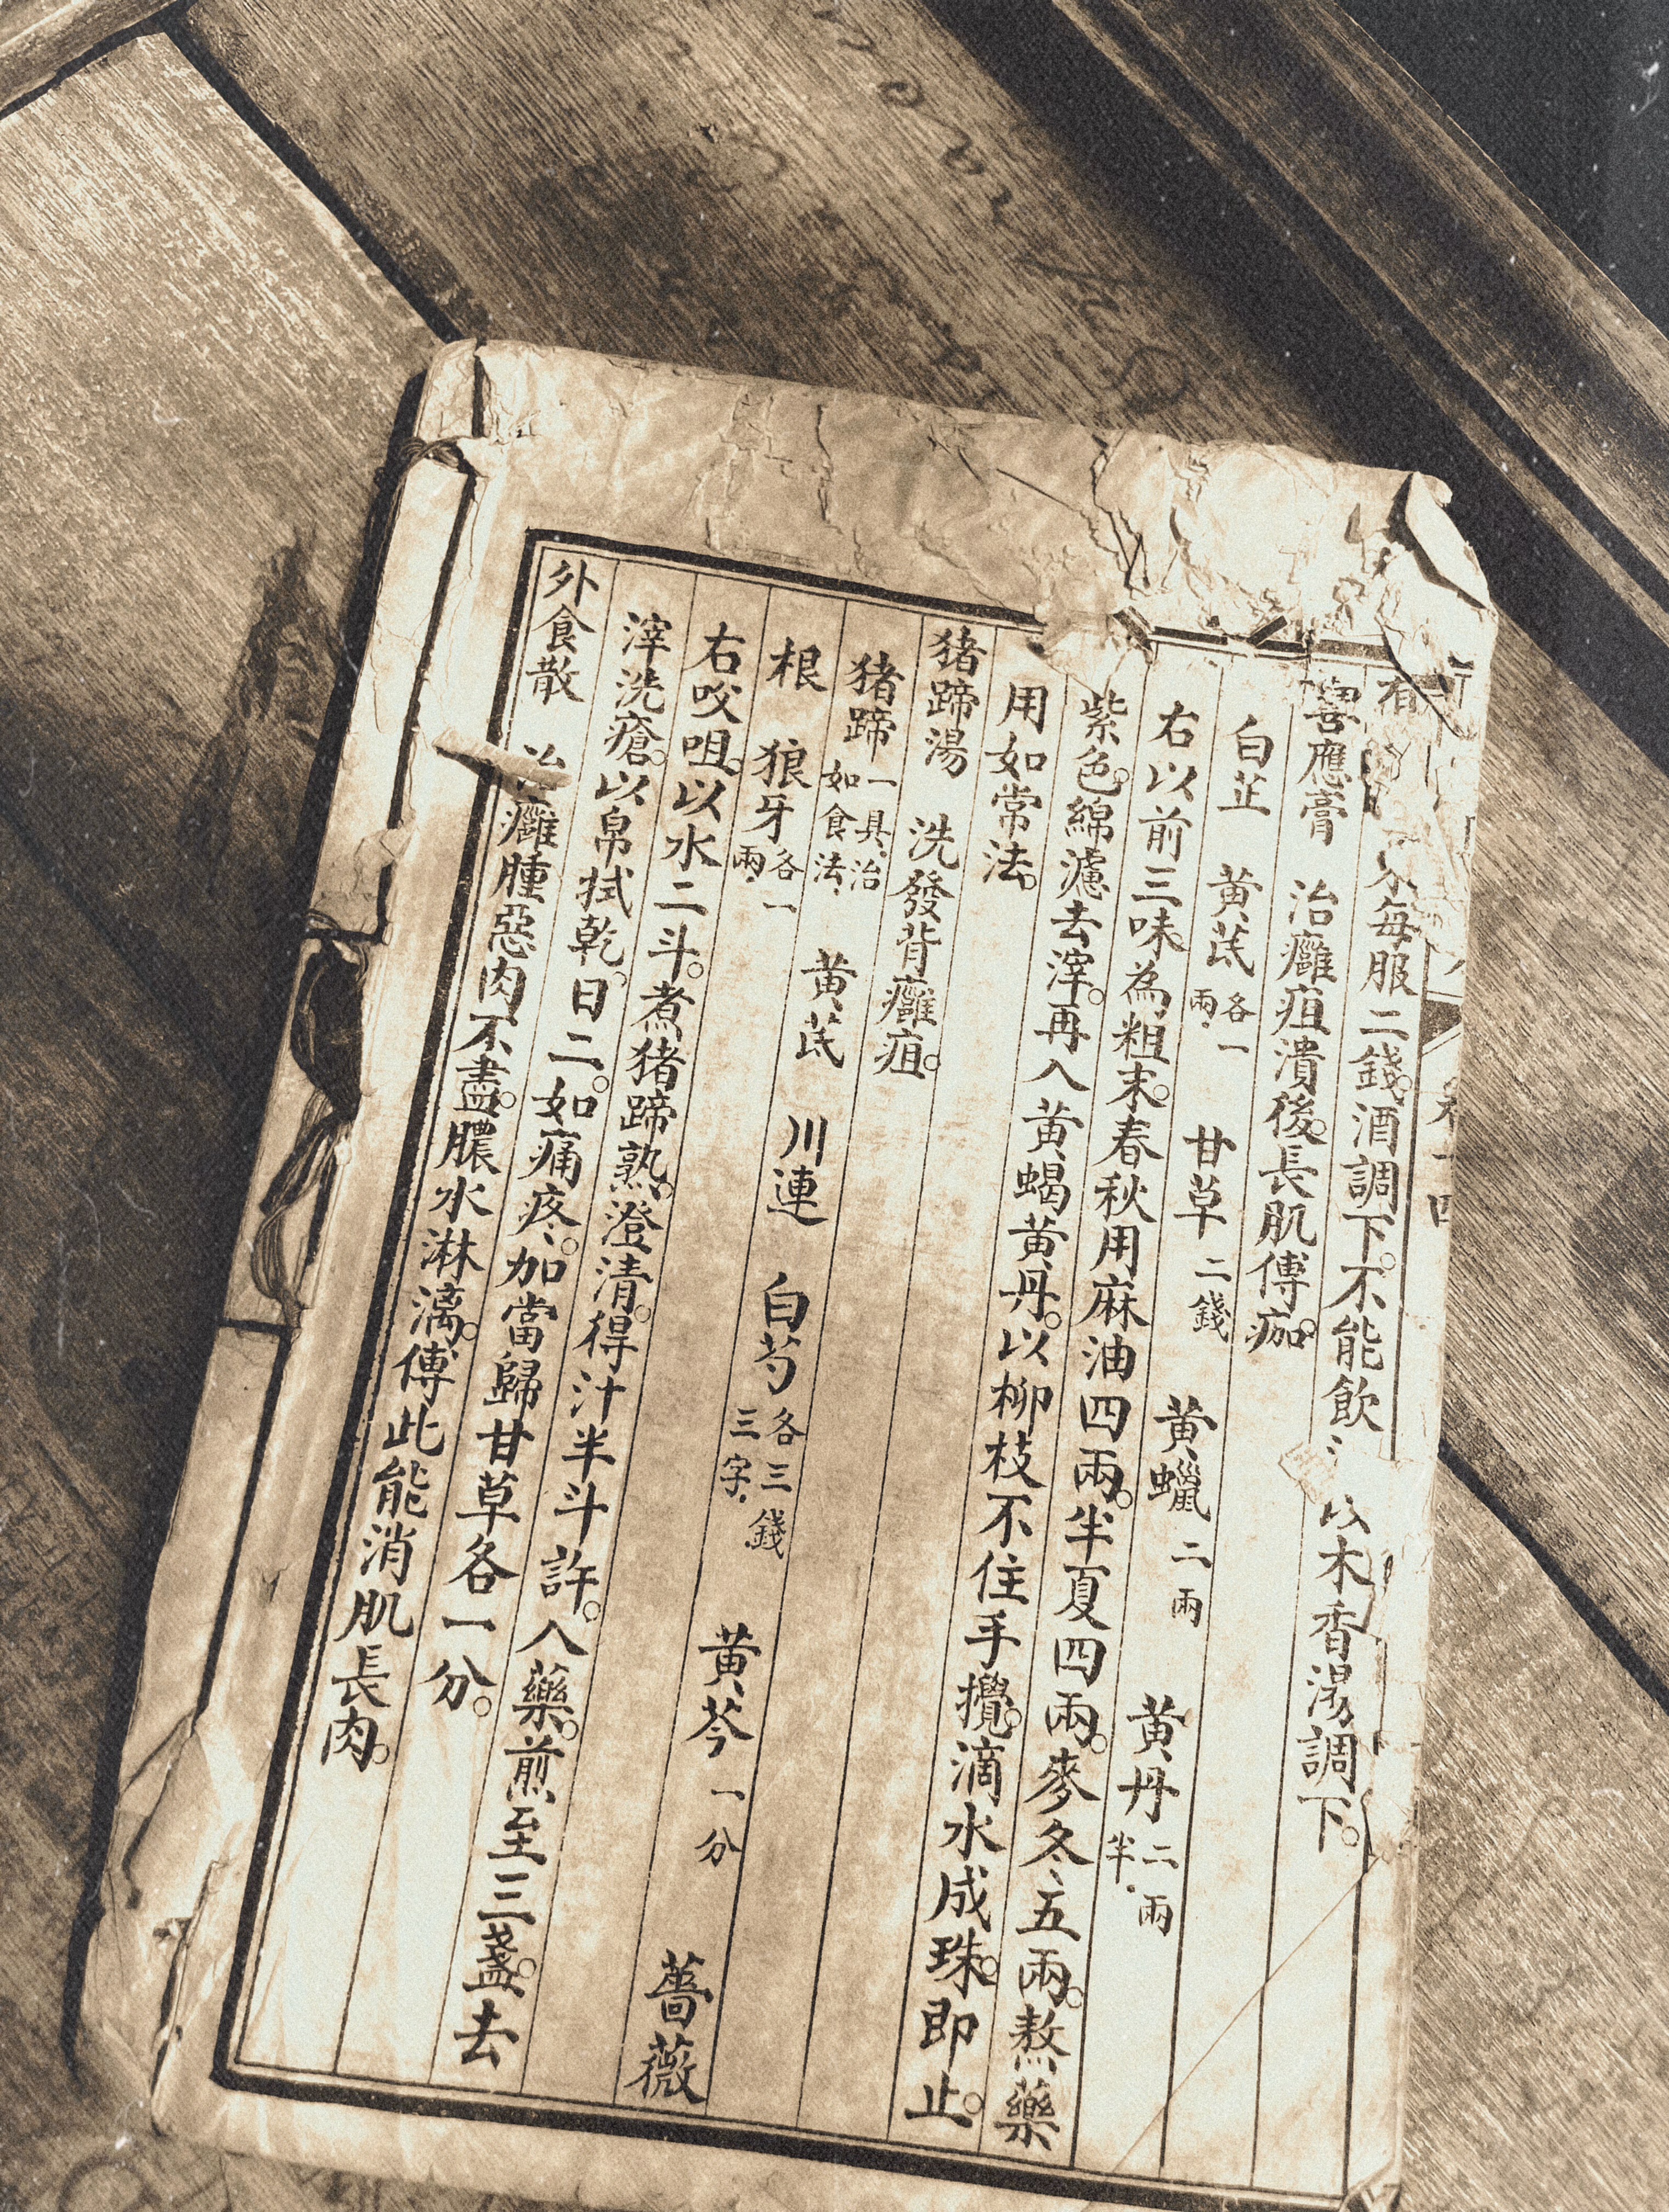 每服二錢。酒調下。不能飲以木香湯調下。
應膏　治癰疽潰後。長肌傅痂。
白芷　黃芪各一兩　甘草二錢　黃蠟二兩　黃丹二兩半
右以前三味。為粗末。春秋用麻油四兩。半夏四兩。麥冬五兩。熬藥
紫色。綿濾去滓。再入黃蝎黃丹。以柳枝不住手攪。滴水成珠。即止。
用如常法。
猪蹄湯　洗發背癰疽。
猪蹄一具治如食法　黃芪　川連　白芍各三錢三字　黃芩一分　薔薇
根　狼牙各一兩
右咬咀。以水二斗。煮猪蹄熟。澄清。得汁半斗許。入藥。煎至三盞。去
滓洗瘡。以帛拭乾。日二。如痛疼。加當歸甘草各一分。
外食散　治癰腫惡肉不盡。膿水淋漓。傅此能消肌長肉。